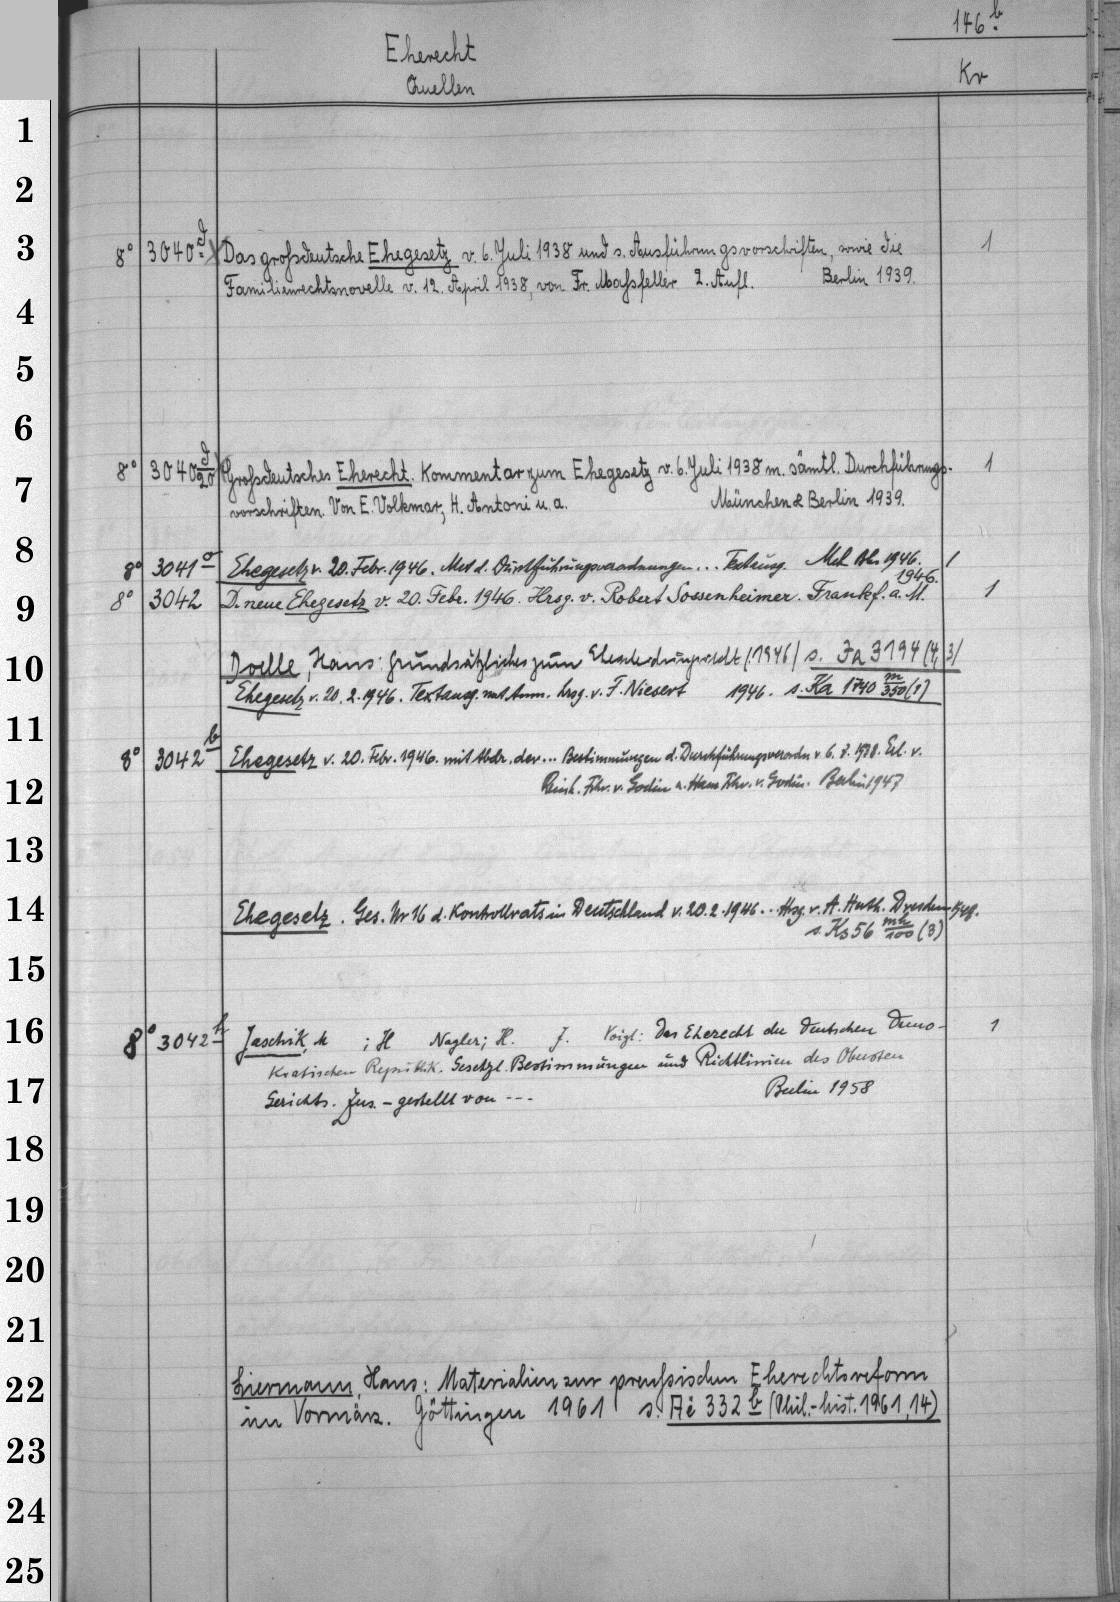 146 b.
Eherecht
Quellen
Kv
1
2
3
8° 3040 d Das großdeutsche Ehegesetz v. 6. Juli 1938 und s. Ausführungsvorschriften, sowie die 1
Familienrechtsnovelle v. 12. April 1938, von Fr. Maßfeller 2. Aufl. Berlin 1939.
4
5
6
8° 3040 d/20 Großdeutsches Eherecht. Kommentar zum Ehegesetz v. 6. Juli 1938 m. sämtl. Durchführungs- 1
7
vorschriften. Von E. Volkmar, H. Antoni u. a. München & Berlin 1939.
8
8° 3041 a Ehegesetz v. 20. Febr. 1946. Met d. Durchführungsverordnungen... Textausg. 1946. 1
1946.
9
8° 3042 D. neue Ehegesetz v. 20. Febr. 1946. Hrsg. v. Robert Sossenheimer. Frankf. a. M. 1
10
Doelle, Hans: Grundsätzliches zum Ehescheidungsrecht (1946) s. Fa 3194 (4, 3)
Ehegesetz v. 20. 2. 1946. Textausg. mit Anm. hrsg. v. F. Niesert 1946. s. Ka 1740 m/350 (1)
11
8° 3042 b Ehegesetz v. 20. Febr. 1946. mit Abdr. der... Bestimmungen d. Durchführungsverordn v 6. 7. 1938. Erl. v.
12
Reinh. Frhr. v. Godin u. Hans Frhr. v. Godin. Berlin 1947
13
14
Ehegesetz. Ges. Nr 16 d. Kontrollrats in Deutschland v. 20. 2. 1946... Hrsg. v. A. Huth. Dresden 1948.
s. Ks 56 mh/100 (3)
15
16
8° 3042 h Jaschik, M ; H Nagler; H. J. Voigt: Das Eherecht der Deutschen Demo- 1
kratischen Republik. Gesetzl. Bestimmungen und Richtlinien des Obersten
17
Gerichts. Zus.-gestellt von --- Berlin 1958
18
19
20
21
22
Liermann, Hans: Materialien zur preußischen Eherechtsreform
im Vormärz. Göttingen 1961 s. Aë 332 b (Phil.-hist. 1961, 14)
23
24
25